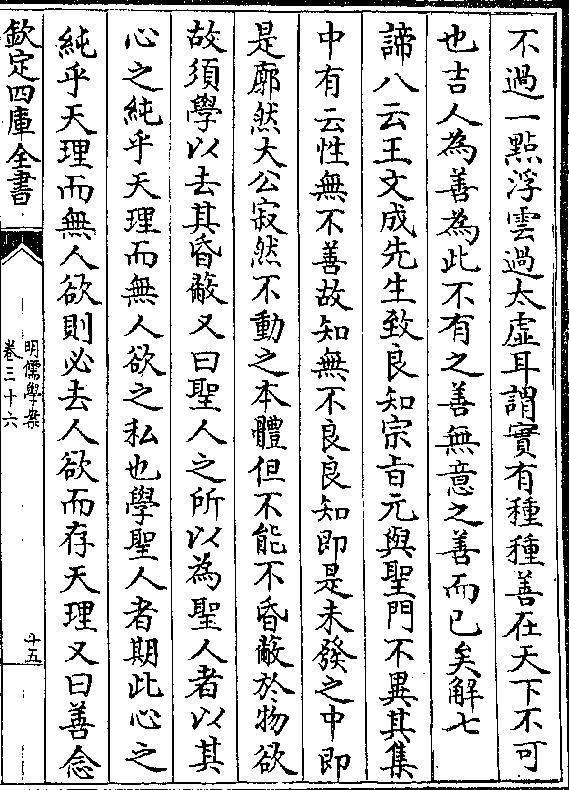 不過一點浮雲過太虛耳謂實有種種善在天下不可
也吉人為善為此不有之善無意之善而已矣解七
諦八云王文成先生致良知宗旨元與聖門不異其集
中有云性無不善故知無不良良知即是未發之中即
是廓然大公寂然不動之本體但不能不昏蔽於物欲
故須學以去其昏蔽又曰聖人之所以為聖人者以其
心之純乎天理而無人欲之私也學聖人者期此心之
純乎天理而無人欲則必去人欲而存天理又曰善念
欽定四庫全書
明儒學案
卷三十六
十五